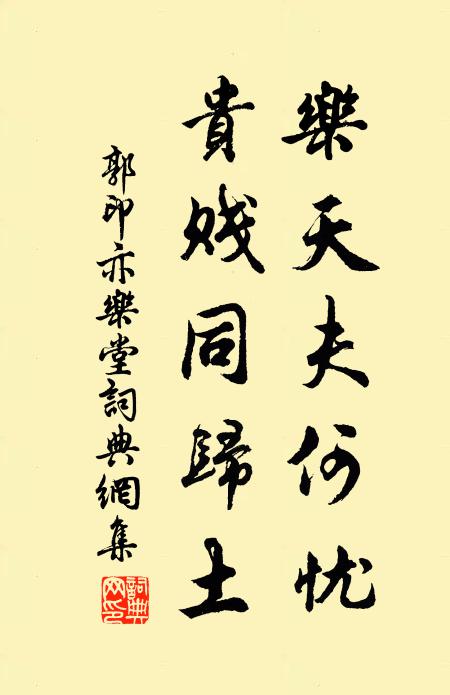 樂天夫何忧
貴賤同歸土
郭印亦樂堂詞典網集